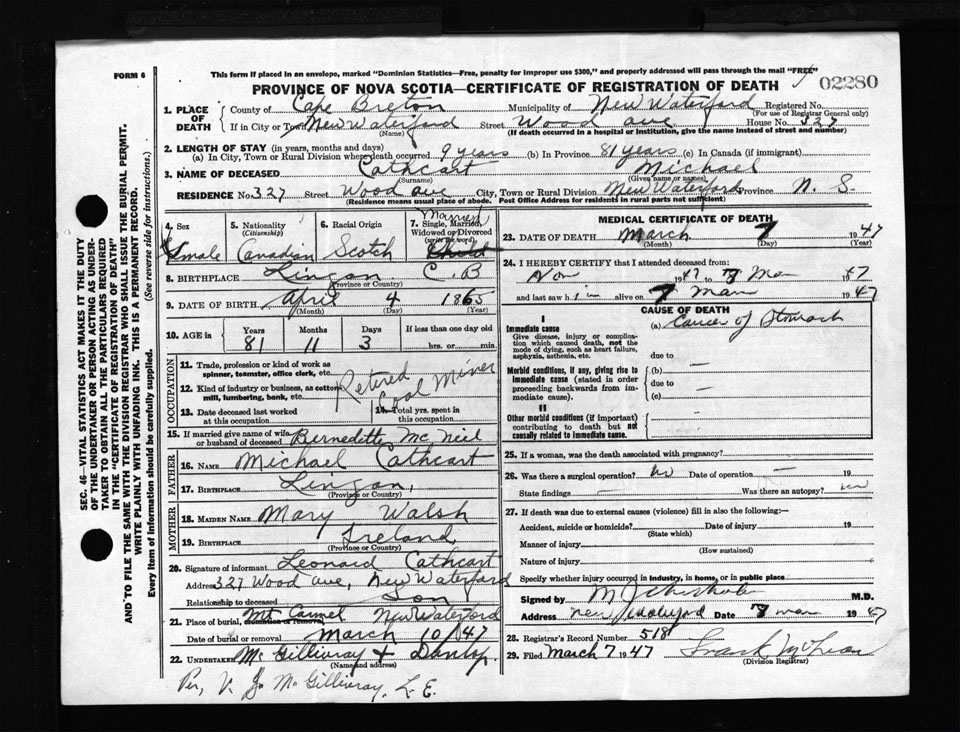 FORM 6
This form if placed in an envelope, marked "Dominion Statistics—Free, penalty for improper use $300," and properly addressed will pass through the mail "FREE"
02280
PROVINCE OF NOVA SCOTIA—CERTIFICATE OF REGISTRATION OF DEATH
1. PLACE OF DEATH
County of Cape Breton Municipality of New Waterford Registered No.
(For use of Registrar General only)
If in City or Town New Waterford Street Wood ave House No. 327
(Name) (If death occurred in a hospital or institution, give the name instead of street and number)
2. LENGTH OF STAY (in years, months and days)
(a) In City, Town or Rural Division where death occurred 9 years (b) In Province 81 years (c) In Canada (if immigrant)
3. NAME OF DECEASED Cathcart Michael
(Surname) (Given name or names)
RESIDENCE No. 327 Street Wood ave City, Town or Rural Division New Waterford Province N. S.
(Residence means usual place of abode. Post Office Address for residents in rural parts not sufficient)
4. Sex male
5. Nationality (Citizenship) Canadian
6. Racial Origin Scotch
7. Single, Married, Widowed or Divorced (write the word) Married
8. BIRTHPLACE Lingan C. B
(Province or Country)
9. DATE OF BIRTH April 4 1865
(Month) (Day) (Year)
10. AGE in Years Months Days If less than one day old
81 11 3 hrs. or min.
OCCUPATION
11. Trade, profession or kind of work as spinner, teamster, office clerk, etc.
12. Kind of industry or business, as cotton mill, lumbering, bank, etc.
Retired Coal Miner
13. Date deceased last worked at this occupation
14. Total yrs. spent in this occupation
15. If married give name of wife or husband of deceased Bernedette McNeil
FATHER
16. NAME Michael Cathcart
17. BIRTHPLACE Lingan,
(Province or Country)
MOTHER
18. MAIDEN NAME Mary Walsh
19. BIRTHPLACE Ireland
(Province or Country)
20. Signature of informant Leonard Cathcart
Address 327 Wood ave, New Waterford
Relationship to deceased Son
21. Place of burial, cremation or removal Mt Carmel New Waterford
Date of burial or removal March 10/47
22. UNDERTAKER McGillivray & Dunlop.
(Name and address)
Per, V. J. McGillivray, L. E.
MEDICAL CERTIFICATE OF DEATH
23. DATE OF DEATH March 7 1947
(Month) (Day) (Year)
24. I HEREBY CERTIFY that I attended deceased from:
Nov 1947 to 7 Mar 47
and last saw him alive on 7 Mar 1947
CAUSE OF DEATH
I
Immediate cause
Give disease, injury or complication which caused death, not the mode of dying, such as heart failure, asphyxia, asthenia, etc.
(a) Cancer of Stomach
due to
Morbid conditions, if any, giving rise to immediate cause (stated in order proceeding backwards from immediate cause).
(b) —
due to —
(c)
II
Other morbid conditions (if important) contributing to death but not causally related to immediate cause.
25. If a woman, was the death associated with pregnancy?
26. Was there a surgical operation? no Date of operation — 19
State findings — Was there an autopsy? no
27. If death was due to external causes (violence) fill in also the following:—
Accident, suicide or homicide? Date of injury 19
(State which)
Manner of injury
(How sustained)
Nature of injury
Specify whether injury occurred in industry, in home, or in public place
Signed by M J Chisholm M.D.
Address New Waterford Date 7 mar 1947
28. Registrar's Record Number 518
29. Filed March 7 1947 Frank McLean
(Division Registrar)
SEC. 46—VITAL STATISTICS ACT MAKES IT THE DUTY
OF THE UNDERTAKER OR PERSON ACTING AS UNDER-
TAKER TO OBTAIN ALL THE PARTICULARS REQUIRED
IN THE "CERTIFICATE OF REGISTRATION OF DEATH"
AND TO FILE THE SAME WITH THE DIVISION REGISTRAR WHO SHALL ISSUE THE BURIAL PERMIT.
WRITE PLAINLY WITH UNFADING INK. THIS IS A PERMANENT RECORD.
Every item of information should be carefully supplied. (See reverse side for instructions.)